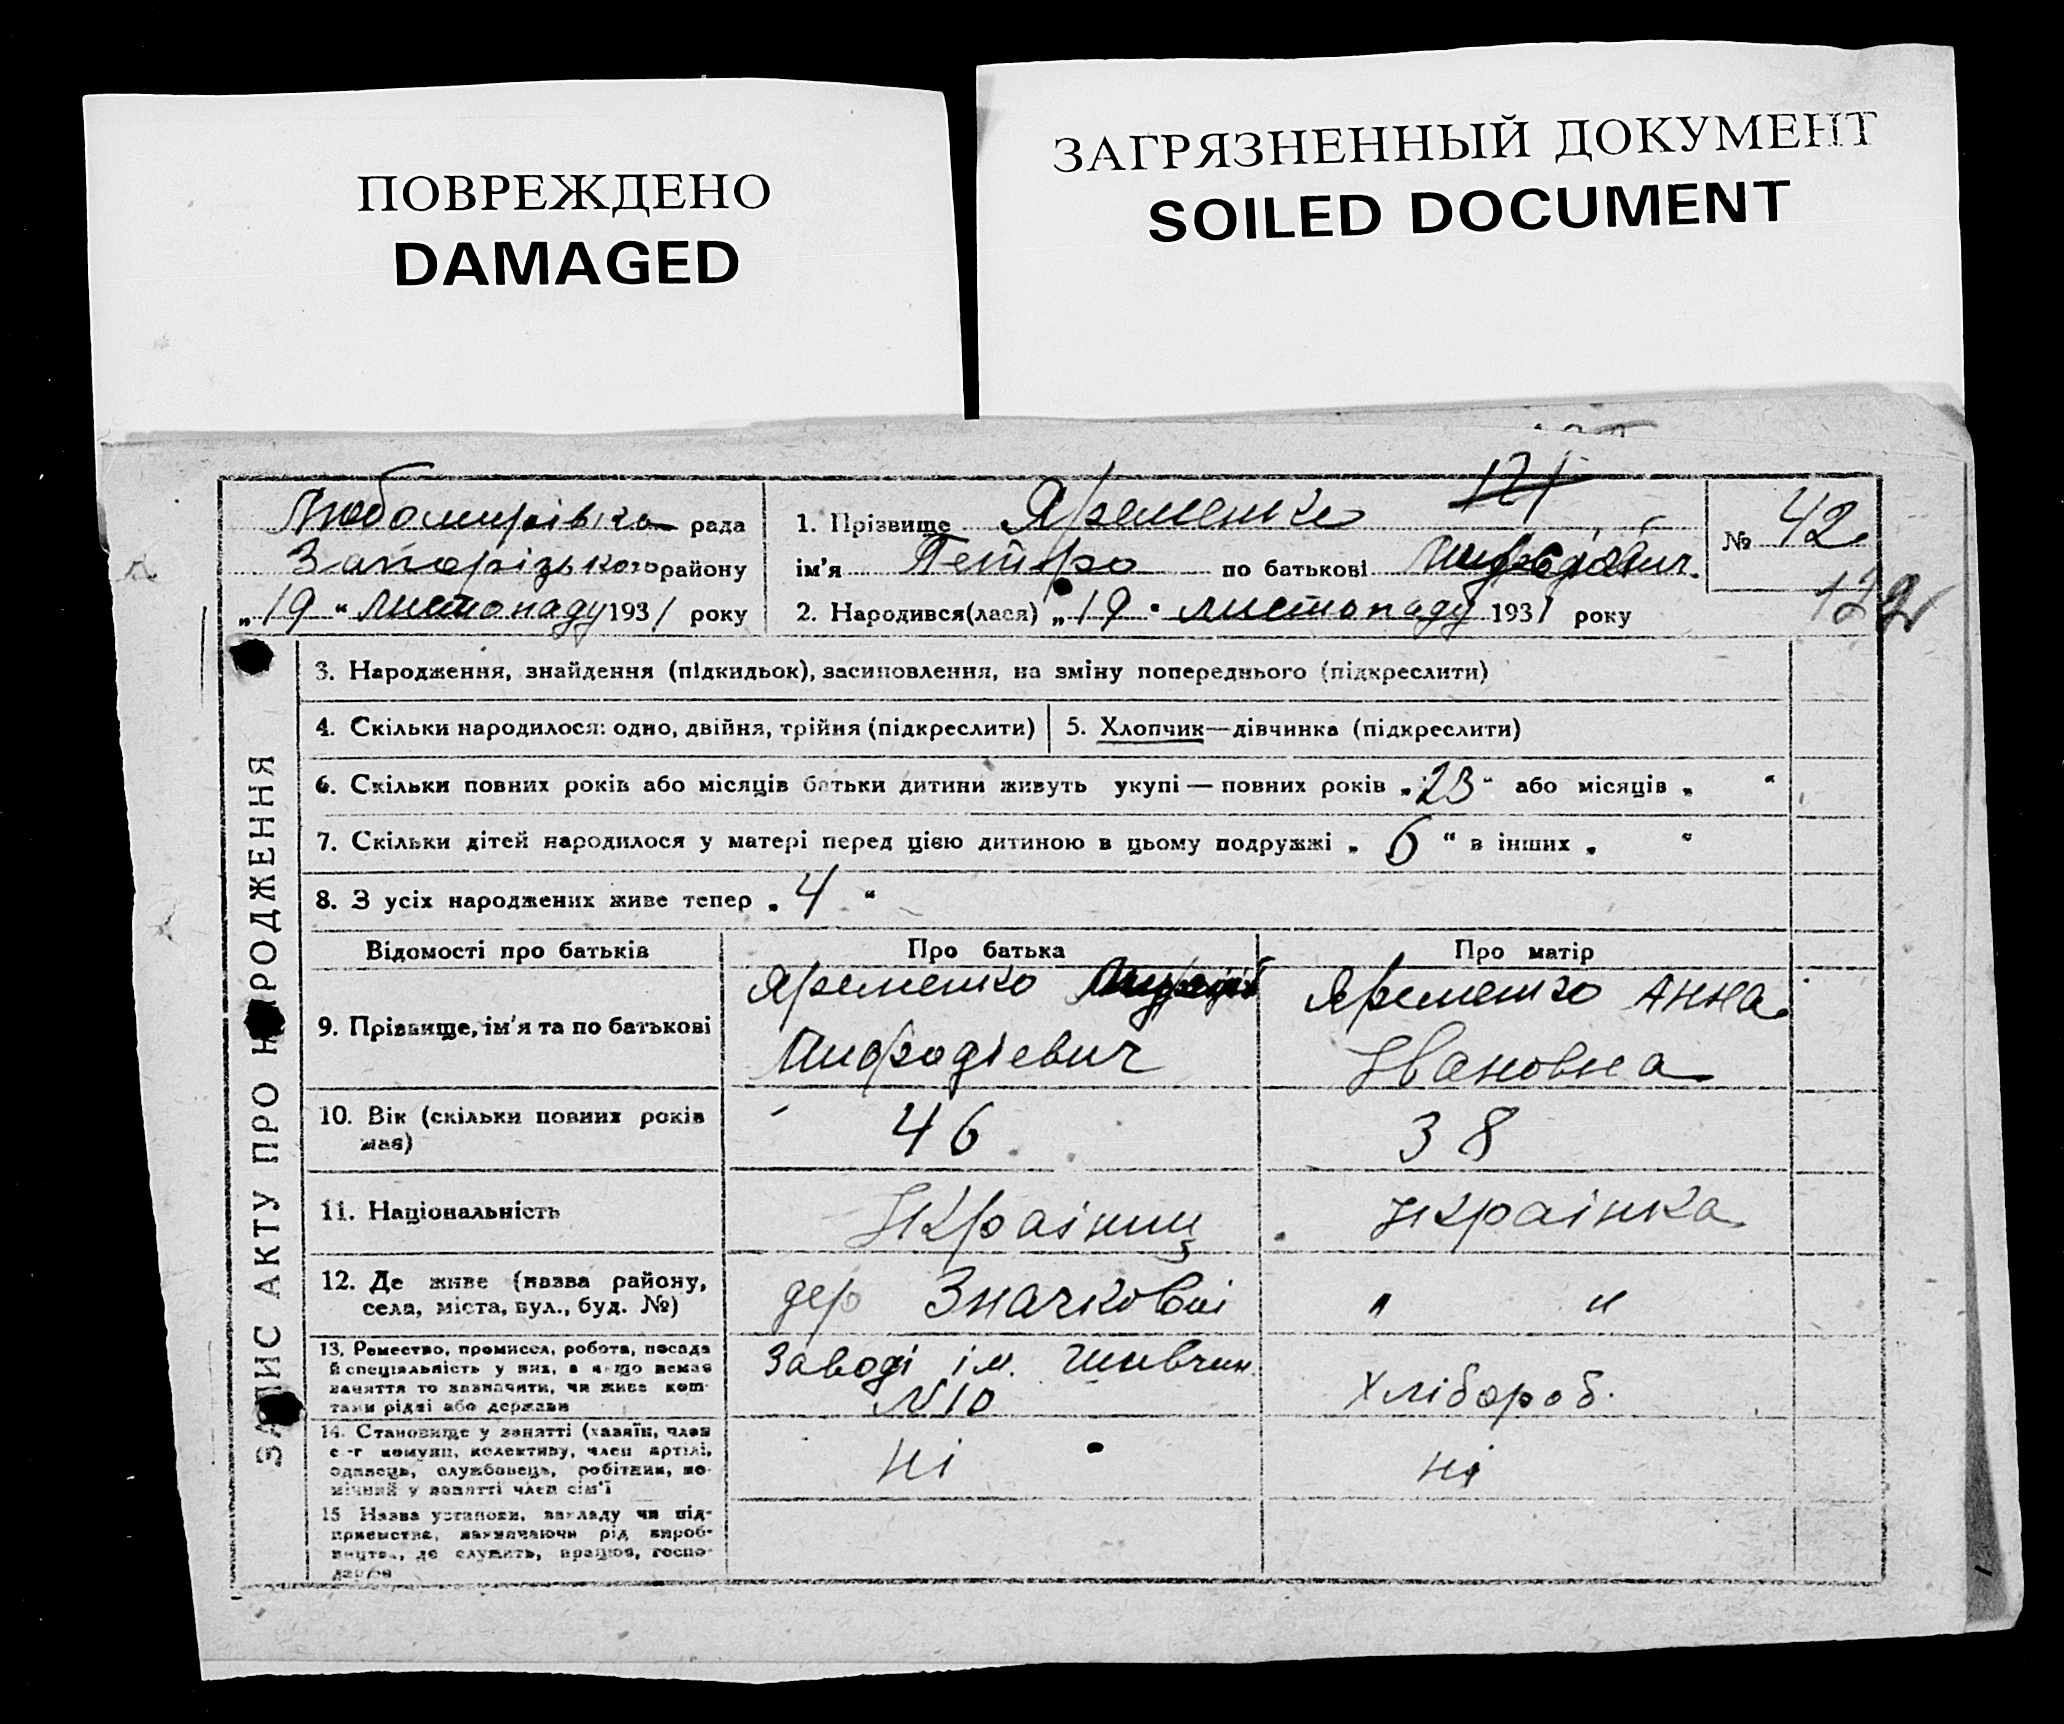 ПОВРЕЖДЕНО
DAMAGED
ЗАГРЯЗНЕННЫЙ ДОКУМЕНТ
SOILED DOCUMENT
121
Любомирівка рада
Запорізького району
„19“ листопаду 1931 року
1. Прізвище Яременко
ім'я Петро по батькові
2. Народився(лася) „19“ листопаду 1931 року
№ 42
122
ЗАПИС АКТУ ПРО НАРОДЖЕННЯ
3. Народження, знайдення (підкидьок), засиновлення, на зміну попереднього (підкреслити)
4. Скільки народилося: одно, двійня, трійня (підкреслити)
5. Хлопчик—дівчинка (підкреслити)
6. Скільки повних років або місяців батьки дитини живуть укупі — повних років „23“ або місяців „ “
7. Скільки дітей народилося у матері перед цією дитиною в цьому подружжі „6“ в інших „ “
8. З усіх народжених живе тепер „4“
Відомості про батьків
Про батька
Про матір
9. Прізвище, ім'я та по батькові
Яременко
Мифодіевич
Яременко Анна
Івановна
10. Вік (скільки повних років
має)
46
38
11. Національність
Украіниц
Украінка
12. Де живе (назва району,
села, міста, вул., буд. №)
дер Значкові
" "
13. Ремество, промисел, робота, посада
й спеціяльність у них, а якщо немає
заняття то зазначити, чи живе кош-
тами рідні або держави
Заводі ім.
№10
Хлібороб.
14. Становище у занятті (хазяїн, член
с.-г комуни, колективу, член артілі,
одинець, службовець, робітник, по-
мічний у занятті член сім'ї
ні
ні
15 Назва установи, закладу чи під-
приємства, зазначаючи рід вироб-
ництва, де служить, працює, госпо-
дарює